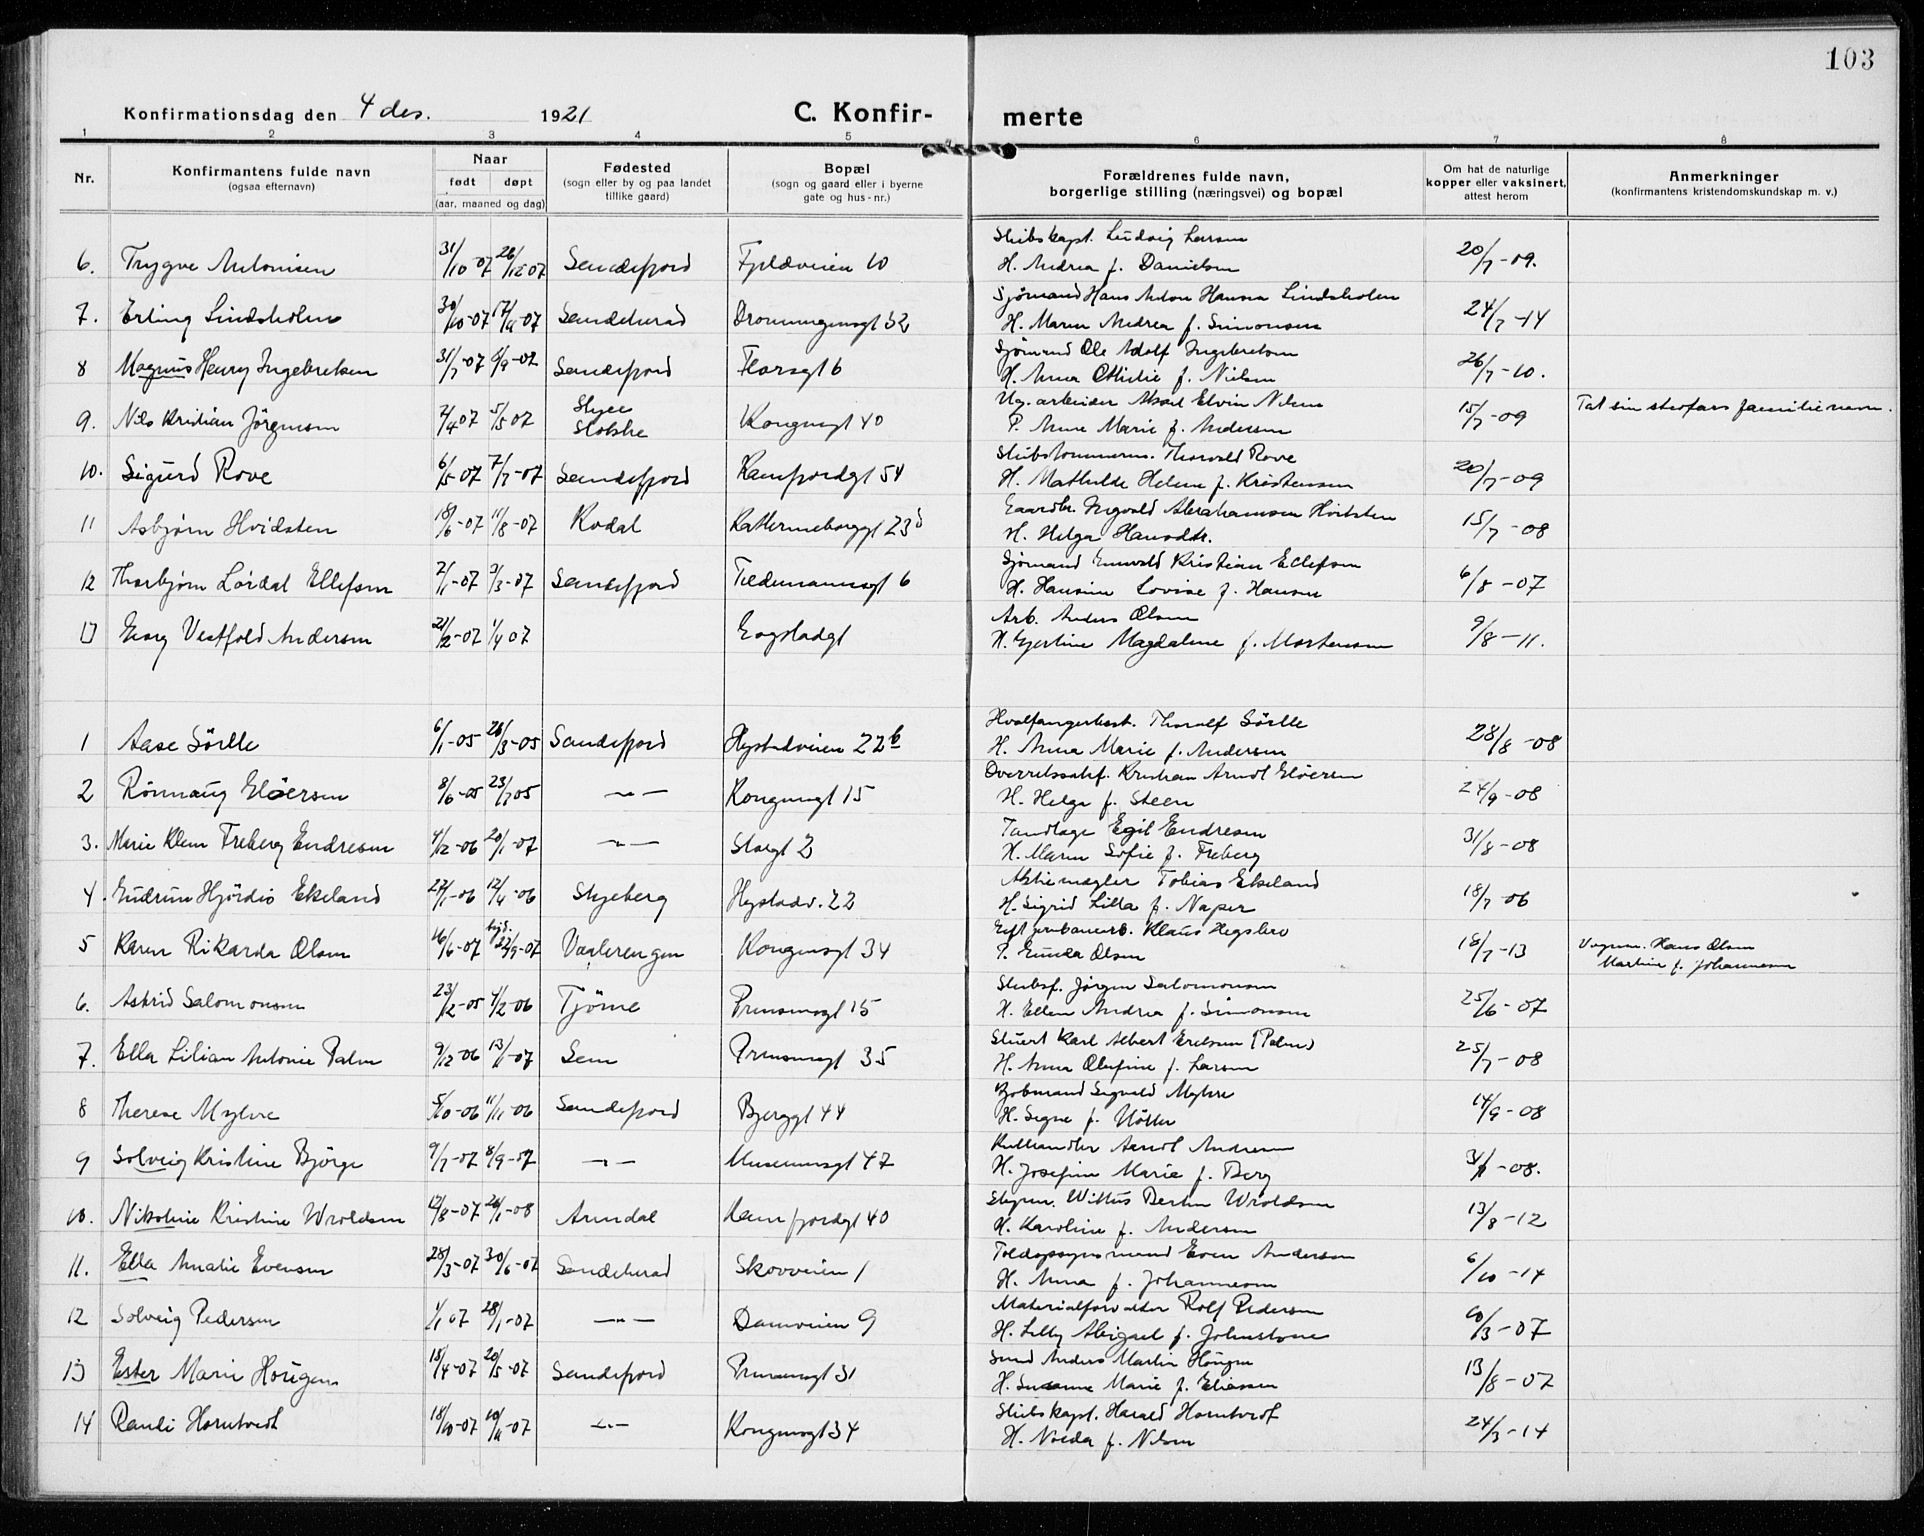 103
Konfirmationsdag den 4 des. 1921 C. Konfir- merte
1 2 3 4 5 6 7 8
Nr.
Konfirmantens fulde navn
(ogsaa efternavn)
Naar
født døpt
(aar, maaned og dag)
Fødested
(sogn eller by og paa landet
tillike gaard)
Bopæl
(sogn og gaard eller i byerne
gate og hus-nr.)
Forældrenes fulde navn,
borgerlige stilling (næringsvei) og bopæl
Om hat de naturlige
kopper eller vaksinert,
attest herom
Anmerkninger
(konfirmantens kristendomskundskap m. v.)
Skibskapt. Ludvig Larsen
6. Trygve Antonisen 31/10-07 26/12-07 Sandefjord Fjeldveien 10 H. Andrea f. Danielsen 20/7-09.
Sjömand Hans Anton Hansen Lindsholm
7. Erling Lindsholm 30/10-07 Sandeherad Dronningensgt 32 H. Maren Andrea f. Simonsen 24/7-14
Sjömand Ole Adolf Ingebretsen
8 Magnus Henry Ingebretsen 31/7-07 Sandefjord Florsgt 6 H. Anna Othilie f. Nielsen 26/7-10.
Ug. arbeider Aksel Elvin Nilsen Tat sin stedfars familienavn.
9. Nils Kristian Jörgensen 2/4 07 5/5 07 Kongensgt 40 P. Anne Marie f. Andersen 15/7-09
Skibstømmerm. Thorvald Rove
10. Sigurd Rove 6/5-07 7/7-07 Sandefjord Kamfjordgt 54 H. Mathilde Helene f. Kristensen 20/7-09
Gaardbr. Ingvald Abrahamsen Hvitsten
11 Asbjørn Hvidsten 18/6-07 11/8-07 Kodal H. Helga Hansdtr. 15/7-08
Sjömand Kristian Ellefsen
12 Thorbjørn Lördal Ellefsen 2/1-07 3/3-07 Sandefjord Tidemannsgt 6 H. Hansine Lovise f. Hansen 6/8-07
Arb. Anders Olsen
13 Georg Vestfold Andersen 21/2-07 1/4 07 H. Gjertine Magdalene f. Mortensen 9/8-11.
Hvalfangerbest. Thoralf Sörlle
1 Aase Sörlle 6/1-05 26/3-05 Sandefjord Hystadveien 22b H. Anna Marie f. Andersen 28/8-08
Overretssakf. Kristian Arndt Elöersen
2 Rönnaug Elöersen 8/6-05 23/7 05 -"- Kongensgt 15 H. Helga f. Steen 24/9-08
Tandlæge Egil Endresen
3. Marie Klem Freberg Endresen 4/12-06 20/1-07 -"- Storgt 2 H. Maren Sofie f. Freberg 31/8-08
Aktiemægler Tobias Ekeland
4. Gudrun Hjördis Ekeland 27/1-06 12/4-06 Skjeberg Hystadv. 22 H. Sigrid Lilla f. Naper 18/7-06
Klaus Hegsbro Vognm. Hans Olsen
5 Karen Rikarda Olsen 16/6-07 22/9-07 Vaalerengen Kongensgt 34 P. Gunda Olsen 18/7-13 Martine f. Johannesen
Skibsf. Jørgen Salomonsen
6. Astrid Salomonsen 23/12-05 4/2-06 Tjöme Prinsensgt 15 H. Ellen Andrea f. Simonsen 25/6-07
Stuert Karl Albert Eriksen (Palm)
7. Ella Lilian Antonie Palm 9/12-06 Sem Prinsensgt 35 H. Anna Olufine f. Larsen 25/7-08
Sigvald Myhre
8 Therese Myhre 5/10-06 11/11-06 Sandefjord Bjerggt 44 H. Signe f. Nötter 14/9-08
Kulhandler Arndt Andersen
9 Solveig Kristine Bjørge 9/7-07 8/9-07 -"- Museumsgt 47 H. Josefine Marie f. Berg
Styrm. Wittus Bertin Wroldsen
10. Nikoline Kristine Wroldsen 12/8-07 26/1-08 Arendal Kamfjordgt 40 H. Karoline f. Andersen 13/8-12
Toldopsynsmand Even Andersen
11. Ella Amalie Evensen 28/3-07 30/6-07 Sandeherad Skovveien 1 H. Anna f. Johannesen 6/10-14
Materialforvalter Rolf Pedersen
12 Solveig Pedersen 1/1 07 28/1-07 -"- Damveien 9 H. Lilly Abigael f. Johnstone 10/3-07
Smed Anders Martin Hougen
13 Ester Marie Hougen 18/4-07 20/5-07 Sandefjord Prinsensgt 31 H. Susanne Marie f. Eliassen 13/8-07
Skibskapt. Harald Horntvedt
14 Randi Horntvedt 18/10-07 -"- Kongensgt 34 H. Valda f. Nilsen 24/3-14